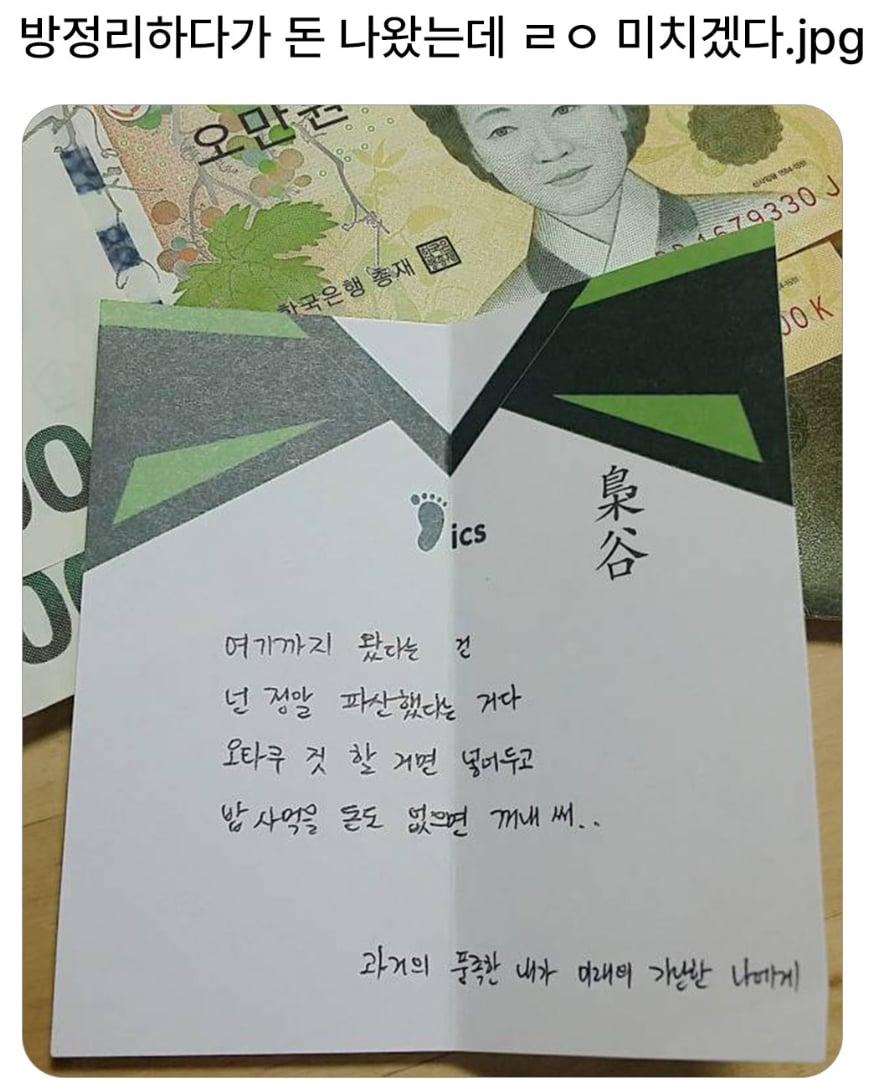 방정리하다가 돈 나왔는데 ㄹㅇ 미치겠다.jpg
오만원
한국은행 총재
1679330 J
00K
00
00
ics
梟谷
여기까지 왔다는 건
넌 정말 파산했다는 거다
오타쿠 짓 할 거면 넣어두고
밥 사먹을 돈도 없으면 꺼내 써..
과거의 풍족한 내가 미래의 가난한 나에게